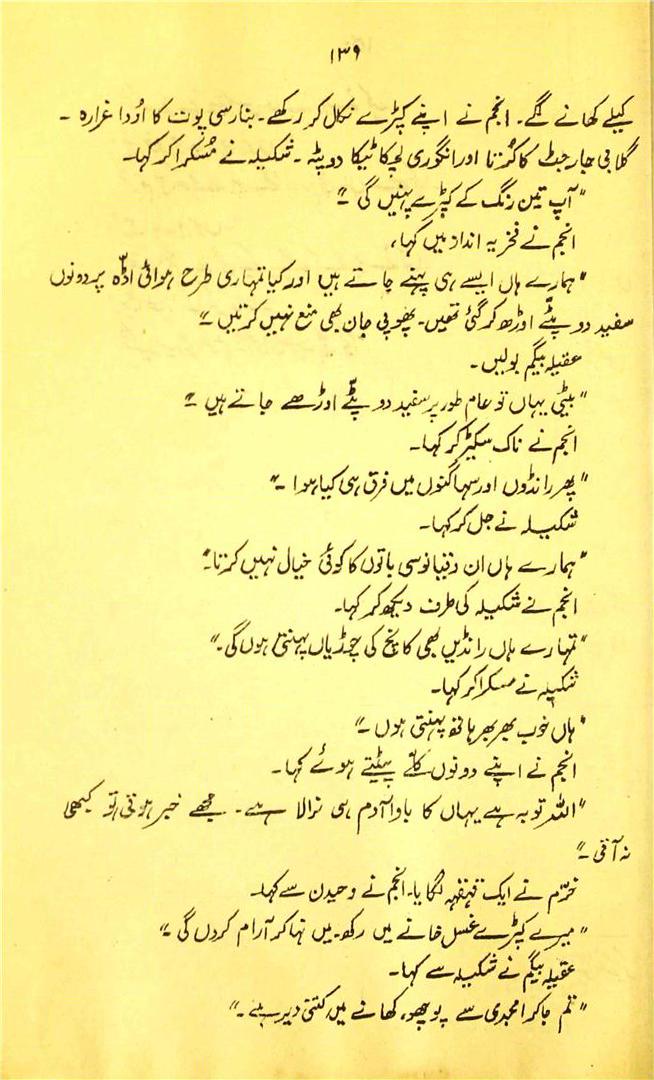 ۱۳۹
کیلے کھانے لگے۔ انجم نے اپنے کپڑے نکال کر رکھے۔ بنارسی پوت کا اُودا غرارہ ۔
گلابی جارجٹ کا کُرتا اور انگوری لچکا ٹیکا دوپٹہ ۔ شکیلہ نے مُسکرا کر کہا۔
"آپ تین رنگ کے کپڑے پہنیں گی ؟"
انجم نے فخریہ انداز میں کہا،
"ہمارے ہاں ایسے ہی پہنے جاتے ہیں اور کیا تمہاری طرح ہوائی اڈّہ پر دونوں
سفید دوپٹّے اوڑھ کر گئی تھیں۔ پھوپی جان بھی منع نہیں کرتیں ۔"
عقیلہ بیگم بولیں۔
"بیٹی یہاں تو عام طور پر سفید دوپٹّے اوڑھے جاتے ہیں ۔"
انجم نے ناک سکیڑ کر کہا۔
"پھر رانڈوں اور سہاگنوں میں فرق ہی کیا ہوا ۔"
شکیلہ نے جل کر کہا۔
"ہمارے ہاں ان دقیانوسی باتوں کا کوئی خیال نہیں کرتا۔"
انجم نے شکیلہ کی طرف دیکھ کر کہا۔
"تمہارے ہاں رانڈیں بھی کانچ کی چوڑیاں پہنتی ہوں گی۔"
شکیلہ نے مسکرا کر کہا۔
"ہاں خوب بھر بھر ہاتھ پہنتی ہوں ۔"
انجم نے اپنے دونوں کلّے پیٹتے ہوئے کہا۔
"اللہ توبہ ہے یہاں کا باوا آدم ہی نرالا ہے۔ مجھے خبر ہوتی تو کبھی
نہ آتی ۔"
خرّم نے ایک قہقہہ لگایا۔ انجم نے وحیدن سے کہا۔
"میرے کپڑے غسل خانے میں رکھو۔ میں نہا کر آرام کروں گی ۔"
عقیلہ بیگم نے شکیلہ سے کہا۔
"تم جا کر امجدی سے پوچھو، کھانے میں کتنی دیر ہے ۔"